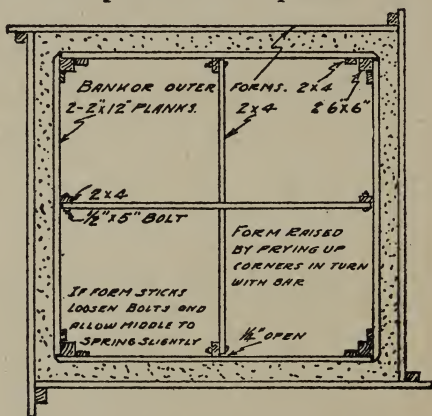 BANK OR OUTER FORMS. 2x4
2-2"x12" PLANKS. 2x4 & 6"x6"
2x4
½"x5" BOLT
FORM RAISED
BY PRYING UP
CORNERS IN TURN
WITH BAR
IF FORM STICKS
LOOSEN BOLTS AND
ALLOW MIDDLE TO
SPRING SLIGHTLY
OPEN